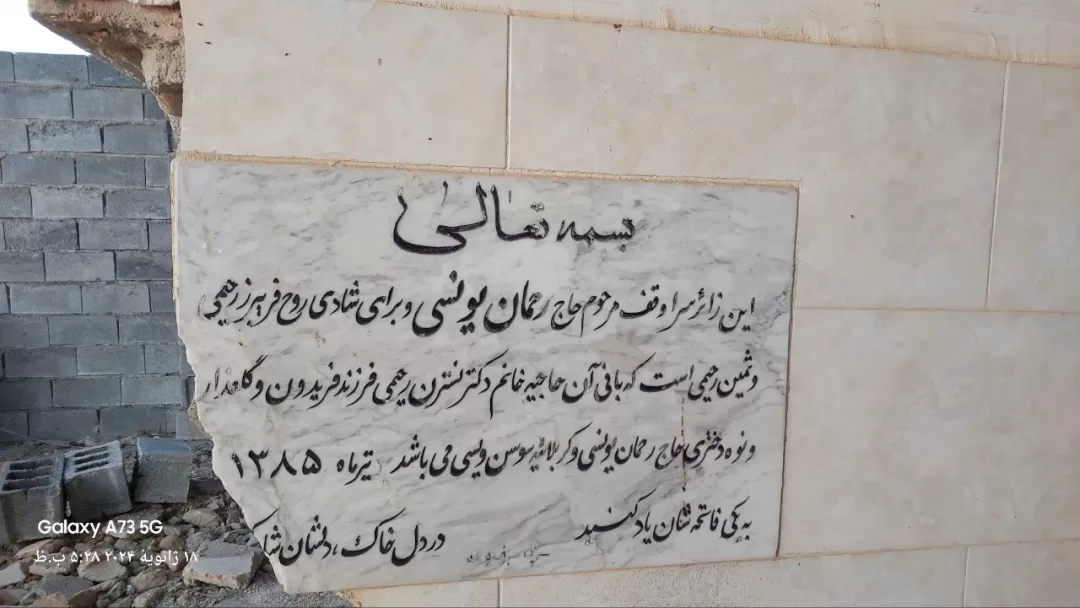 بسمه تعالی
این زائرسرا وقف مرحوم حاج رحمان یونسی و برای شادی روح فریبرز رحیمی
و ثمین رحیمی است که بانی آن حاجیه خانم دکتر نسترن رحیمی فرزند فریدون و گلعذار
و نوه دختری حاج رحمان یونسی و کربلائیه سوسن ویسی می باشد تیرماه ۱۳۸۵
به یکی فاتحه شان یاد کنید
در دل خاک، دلشان شاد
Galaxy A73 5G
۱۸ ژانویهٔ ۲۰۲۴ ۵:۲۸ ب.ظ